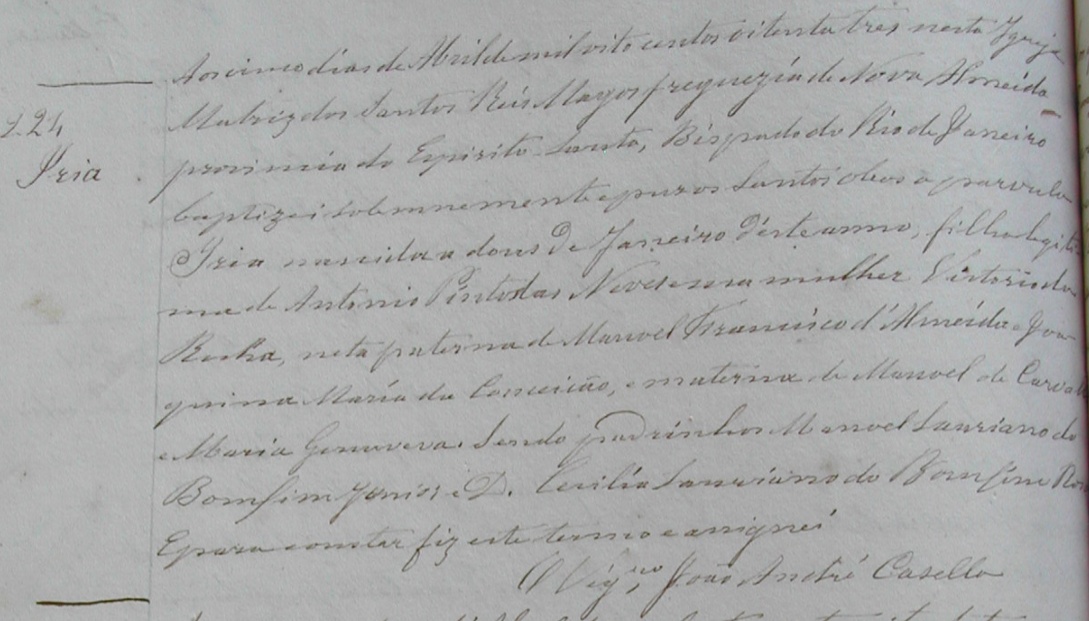 Aos cinco dias de Abril de mil oito centos oitenta tres nesta Igreja
Matriz dos Santos Reis Magos freguezia de Nova Almeida
224
provincia do Espirito Santo, Bispado do Rio de Janeiro
Iria
baptizei solemnemente e puz os Santos oleos a parvula
Iria nascida a dous de Janeiro d'este anno, filha legiti
ma de Antonio Pinto das Neves e sua mulher Victoria da
Rocha, neta paterna de Manoel Francisco d'Almeida e Joa
quina Maria da Conceicão, e materna de Manoel de Carval
e Maria Genoveva. Sendo padrinhos Manoel Lauriano do
Bomfim Junior e D. Cecilia Lauriano do Bomfim
E para constar fiz este termo e assignei
O Vigrº João André Casella